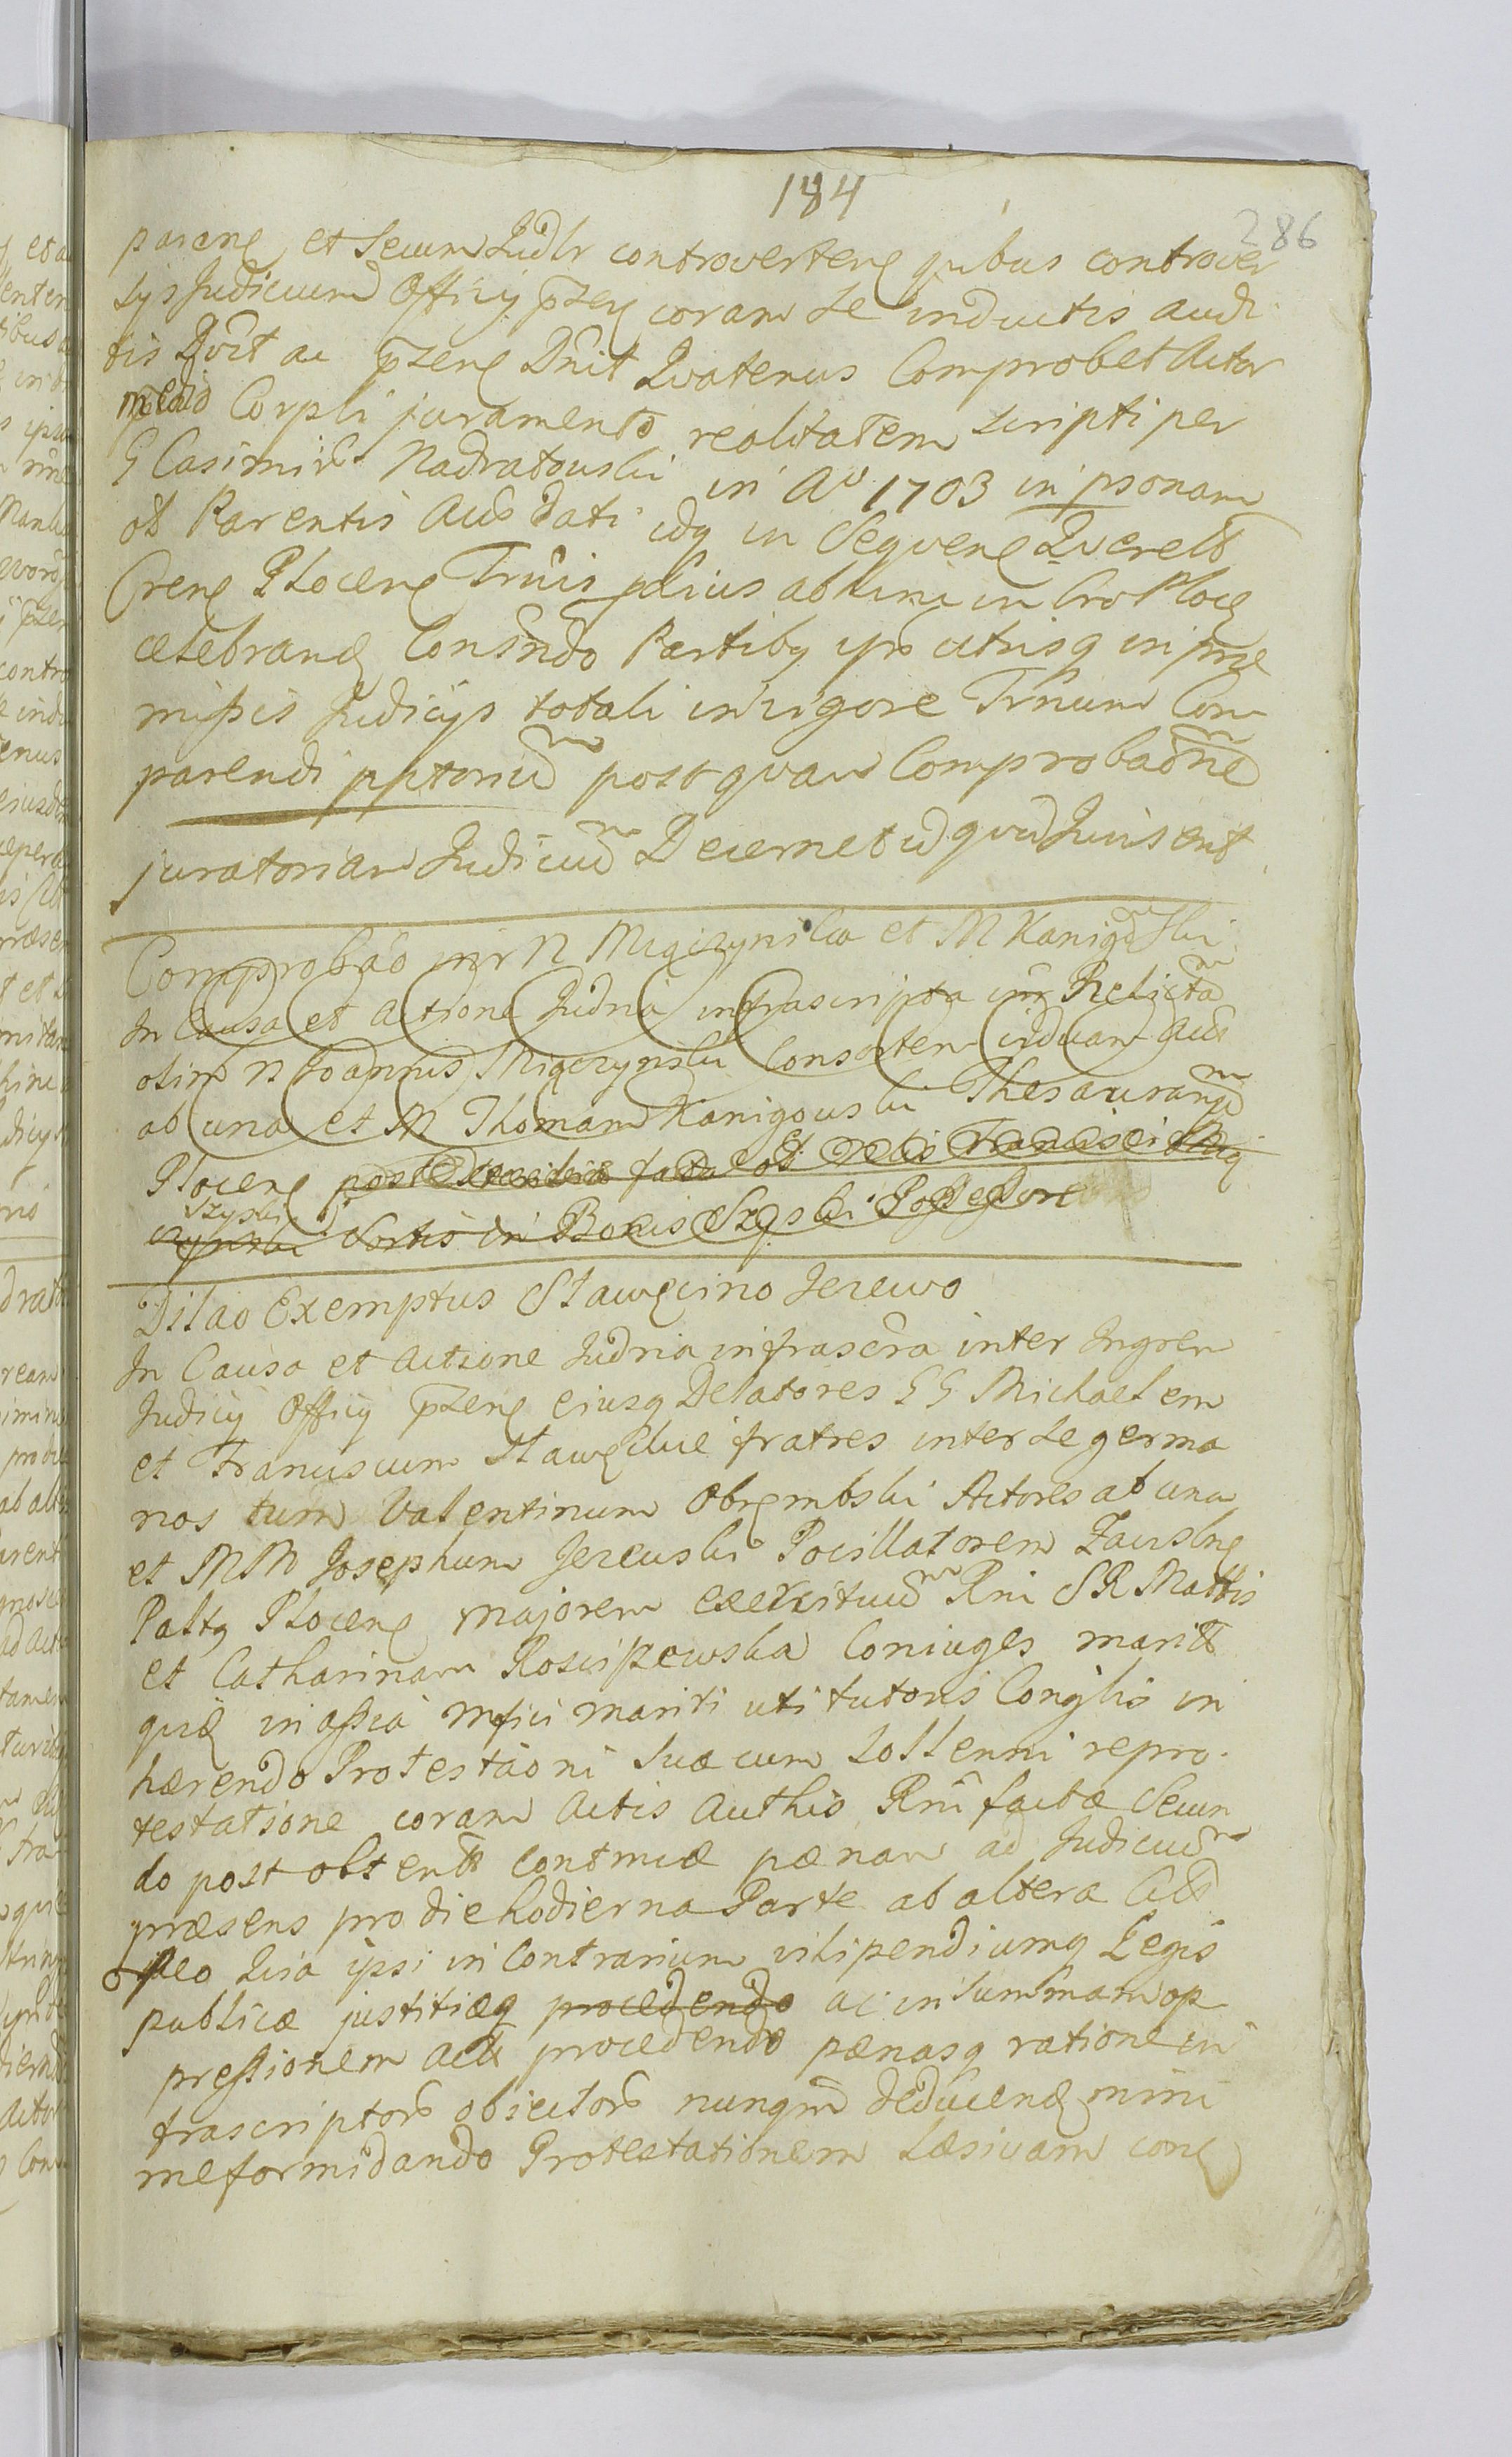 184
286
parenę et Secum Judlr controverteńę qúibus controver
sÿs Judicium Officij p̄zeńę coram se inductis audi
tis Dvit ac p̄zenę Dnit Quatenus Comprobet Actor
medio Corpli juramento realitatem scripti per
G Casimir Nadratowski in Ao 1703 in psonam
ol Parentis Aūs Dati idq in Seqvenę Querels
Crenę Plocenę Trnis pdius ab hinc in Cro Plocę
celebranę Consrndo Partibq ipō utrisq in præ
mißis Judicÿs totali in rigore Trnum Com
parendi pptorium post quam Comprobaōne
juratoriam Judicium Decernet id quid Juris erit
Comprobaō inr N Mięczynska et M Kanigowski
In Causa et Actione Judria infrascripta inr Relictam
olim N Joannis Mięczynski Consortem viduam Aūs
ab una et M Thomam Kanigowski Thesauranum
Plocenę post
Szyski
Sortis in Bonis Possessore
Dilaō Exemptus Stawęcino Jezewo
In Causa et Actione Judria infrascra inter Ingrem
Judicij Officij p̄zenę eiusq Delatores GG Michaelem
et Franciscum Stawęckie fratres inter se germa
nos tum Valentinum Obrembski Actores ab una
et MM Josephum Jezewski Pocillatorem Zawskrę
Paltq Plocenę majorem exercituum Rni SR Mattis
et Catharinam Roscißewska Coniuges maritt
quę in assia mfici mariti uti tutoris Conglis in
hærendo Protestaōni suæ cum sollenni repro
testatione coram Actis Authis Rni factæ Secun
do post obtentt Contmciæ pænam ad Judicium
præsens pro die hodierna Parte ab altera Citts
Qeo Quia ipsi in Contrarium vilipendiumq Legis
publicæ justitiæq procedendo ac in summam op
pressionem Actt procedendo pænasq ratione in
frascriptorō obiectorō nunqm deducenę mini
me formidando Protestationem Læsivam conę